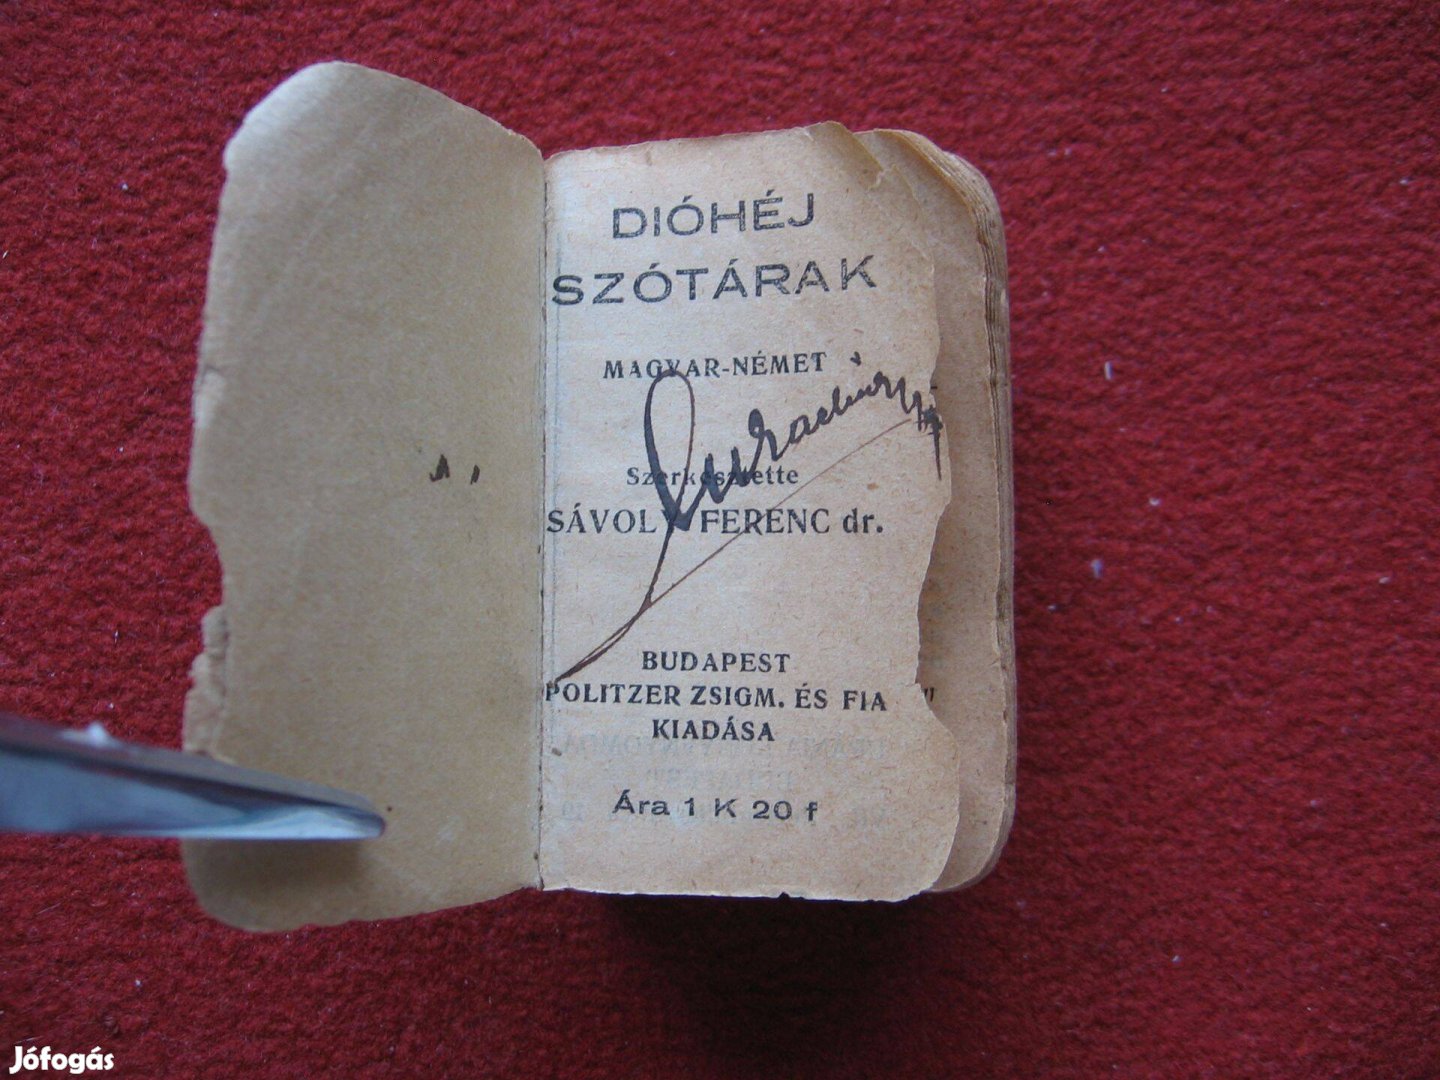 DIÓHÉJ
SZÓTÁRAK
MAGYAR-NÉMET
Szerkesztette
SÁVOLY FERENC dr.
BUDAPEST
POLITZER ZSIGM. ÉS FIA
KIADÁSA
Ára 1 K 20 f
Jófogás